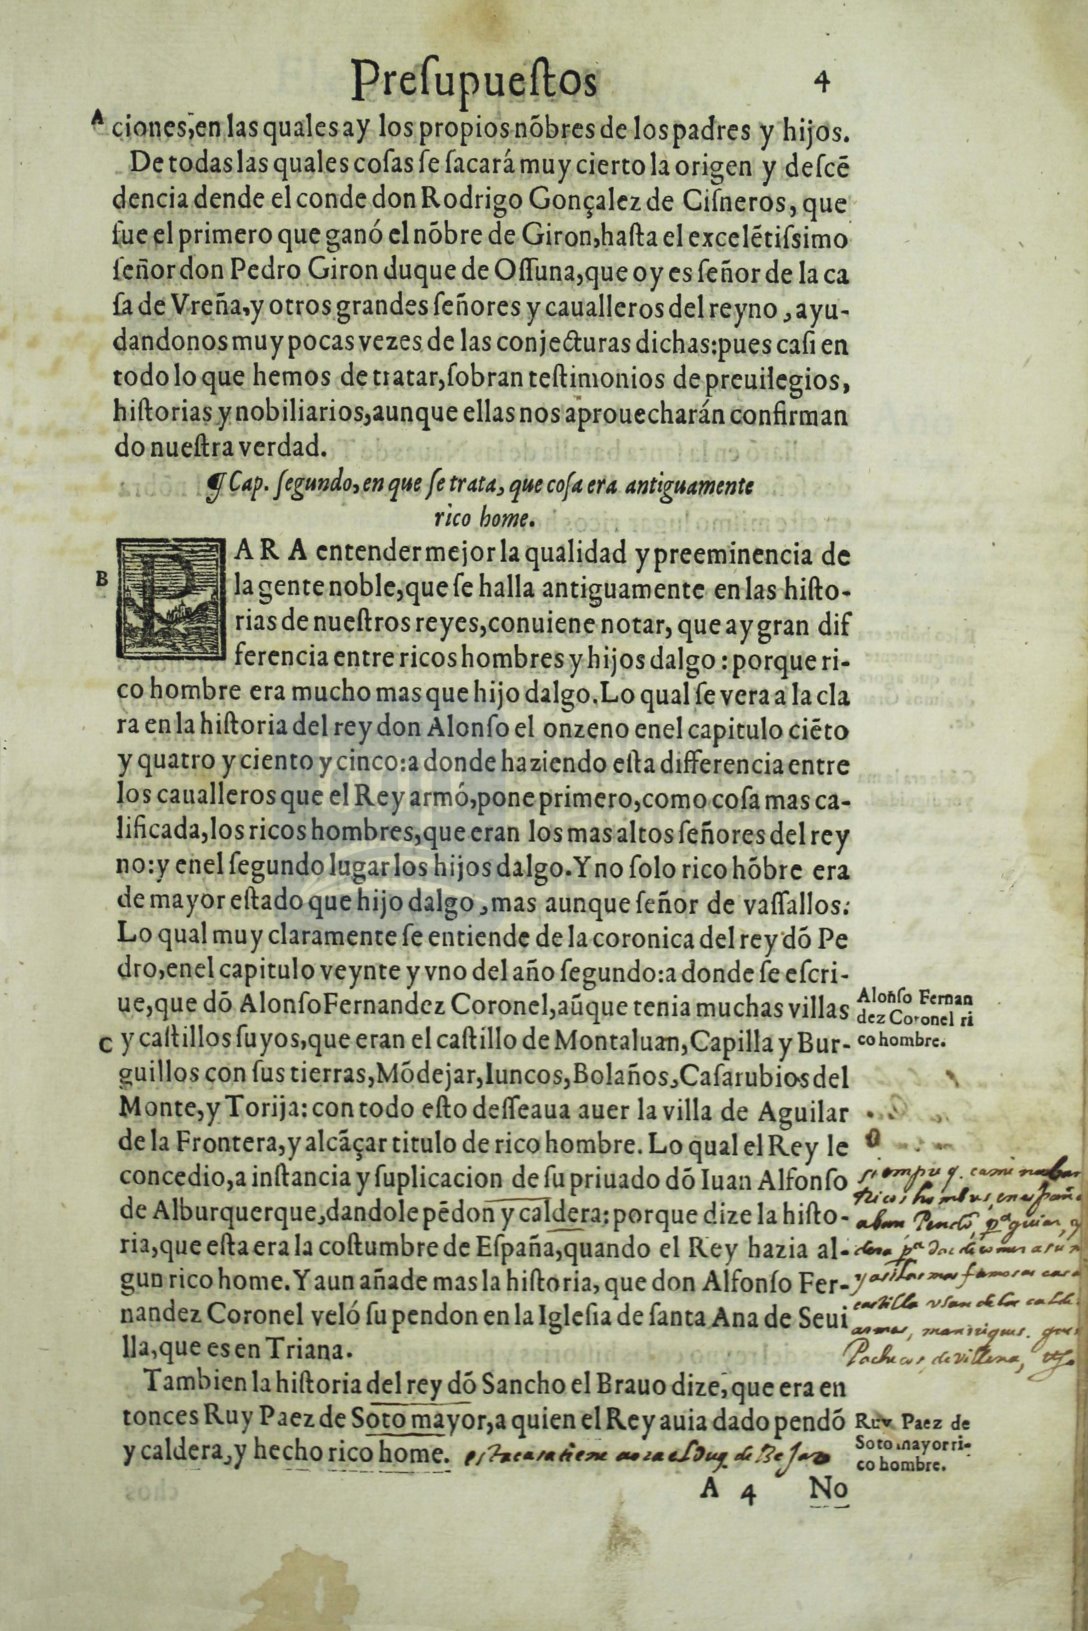 Preſupueſtos 4
A ciones, en las quales ay los propios nõbres de los padres y hijos.
De todas las quales coſas ſe ſacará muy cierto la origen y deſcẽ
dencia dende el conde don Rodrigo Gonçalez de Ciſneros, que
fue el primero que ganó el nõbre de Giron, haſta el excelẽtiſsimo
ſeñor don Pedro Giron duque de Oſſuna, que oy es ſeñor de la ca
ſa de Vreña, y otros grandes ſeñores y caualleros del reyno, ayu-
dandonos muy pocas vezes de las conjecturas dichas: pues caſi en
todo lo que hemos de tratar, ſobran teſtimonios de preuilegios,
hiſtorias y nobiliarios, aunque ellas nos aprouecharán confirman
do nueſtra verdad.
¶ Cap. ſegundo, en que ſe trata, que coſa era antiguamente
rico home.
PARA entender mejor la qualidad y preeminencia de
B la gente noble, que ſe halla antiguamente en las hiſto-
rias de nueſtros reyes, conuiene notar, que ay gran dif
ferencia entre ricos hombres y hijos dalgo: porque ri-
co hombre era mucho mas que hijo dalgo. Lo qual ſe vera a la cla
ra en la hiſtoria del rey don Alonſo el onzeno enel capitulo ciẽto
y quatro y ciento y cinco: a donde haziendo eſta differencia entre
los caualleros que el Rey armó, pone primero, como coſa mas ca-
lificada, los ricos hombres, que eran los mas altos ſeñores del rey
no: y enel ſegundo lugar los hijos dalgo. Y no ſolo rico hõbre era
de mayor eſtado que hijo dalgo, mas aunque ſeñor de vaſſallos:
Lo qual muy claramente ſe entiende de la coronica del rey dõ Pe
dro, enel capitulo veynte y vno del año ſegundo: a donde ſe eſcri-
ue, que dõ Alonſo Fernandez Coronel, aũque tenia muchas villas
Alonſo Fernan
dez Coronel ri
co hombre.
C y caſtillos ſuyos, que eran el caſtillo de Montaluan, Capilla y Bur-
guillos con ſus tierras, Mõdejar, Iuncos, Bolaños, Caſarubios del
Monte, y Torija: con todo eſto deſſeaua auer la villa de Aguilar
de la Frontera, y alcãçar titulo de rico hombre. Lo qual el Rey le
concedio, a inſtancia y ſuplicacion de ſu priuado dõ Iuan Alfonſo
de Alburquerque, dandole pẽdon y caldera: porque dize la hiſto-
ria, que eſta era la coſtumbre de Eſpaña, quando el Rey hazia al-
gun rico home. Y aun añade mas la hiſtoria, que don Alfonſo Fer-
nandez Coronel veló ſu pendon en la Igleſia de ſanta Ana de Seui
lla, que es en Triana.
siempre q. caminaban
ricos hombres, en españa
guiar, q
y asi las mas famosas casas
castilla vsan de las calde
armas, manriques.
Pachecos, de villena,
Tambien la hiſtoria del rey dõ Sancho el Brauo dize, que era en
tonces Ruy Paez de Soto mayor, a quien el Rey auia dado pendõ
y caldera, y hecho rico home. esta casa tiene aora el Duq. de Bejar
Ruy Paez de
Soto mayor ri-
co hombre.
A 4 No